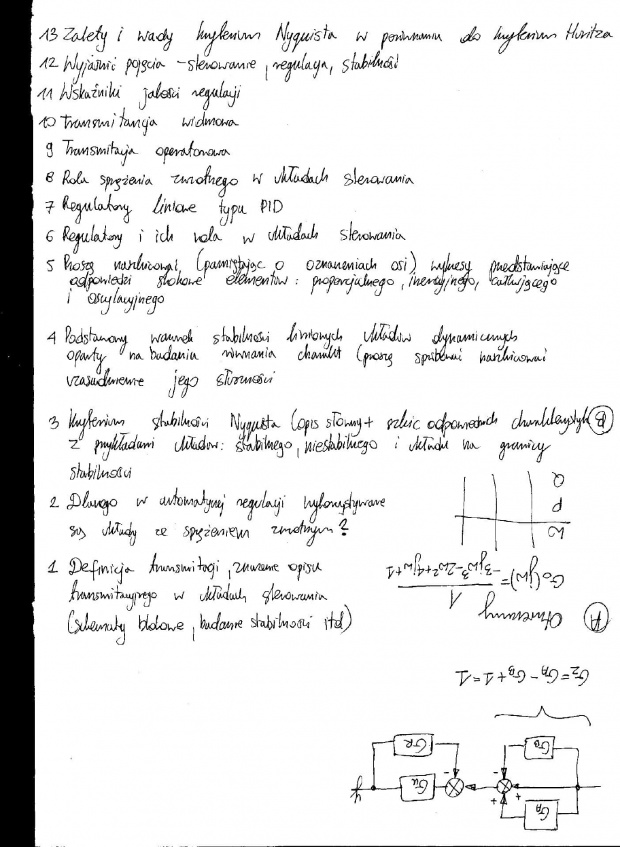 13 Zalety i wady kryterium Nyquista w porównaniu do kryterium Hurwitza
12 Wyjaśnić pojęcia - sterowanie, regulacja, stabilność
11 Wskaźniki jakości regulacji
10 Transmitancja widmowa
9 Transmitacja operatorowa
8 Rola sprzężenia zwrotnego w układach sterowania
7 Regulatory liniowe typu PID
6 Regulatory i ich rola w układach sterowania
5 Proszę naszkicować, (pamiętając o oznaczeniach osi) wykresy przedstawiające
odpowiedzi skokowe elementów: proporcjalnego, inercyjnego, całkującego
i oscylacyjnego
4 Podstawowy warunek stabilności liniowych układów dynamicznych
oparty na badaniu równania charakt (proszę spróbować naszkicować
uzasadnienie jego słuszności
3 Kryterium stabilności Nyquista (opis słowny + szkic odpowiednich charakterystyk
z przykładami układów: stabilnego, niestabilnego i układu na granicy
stabilności
2 Dlaczego w automatycznej regulacji wykorzystywane
są układy ze sprzężeniem zwrotnym?
1 Definicja transmitacji, znaczenie opisu
transmitacyjnego w układach sterowania
(schematy blokowe, badanie stabilności itd)
B
ω
P
Q
A Otwarty
G₀(jω) = 1
-3jω³-2ω²+4jω+1
G_A
G_B
G_U
G_R
y
G_Z = G_A - G_B + 1 = 1